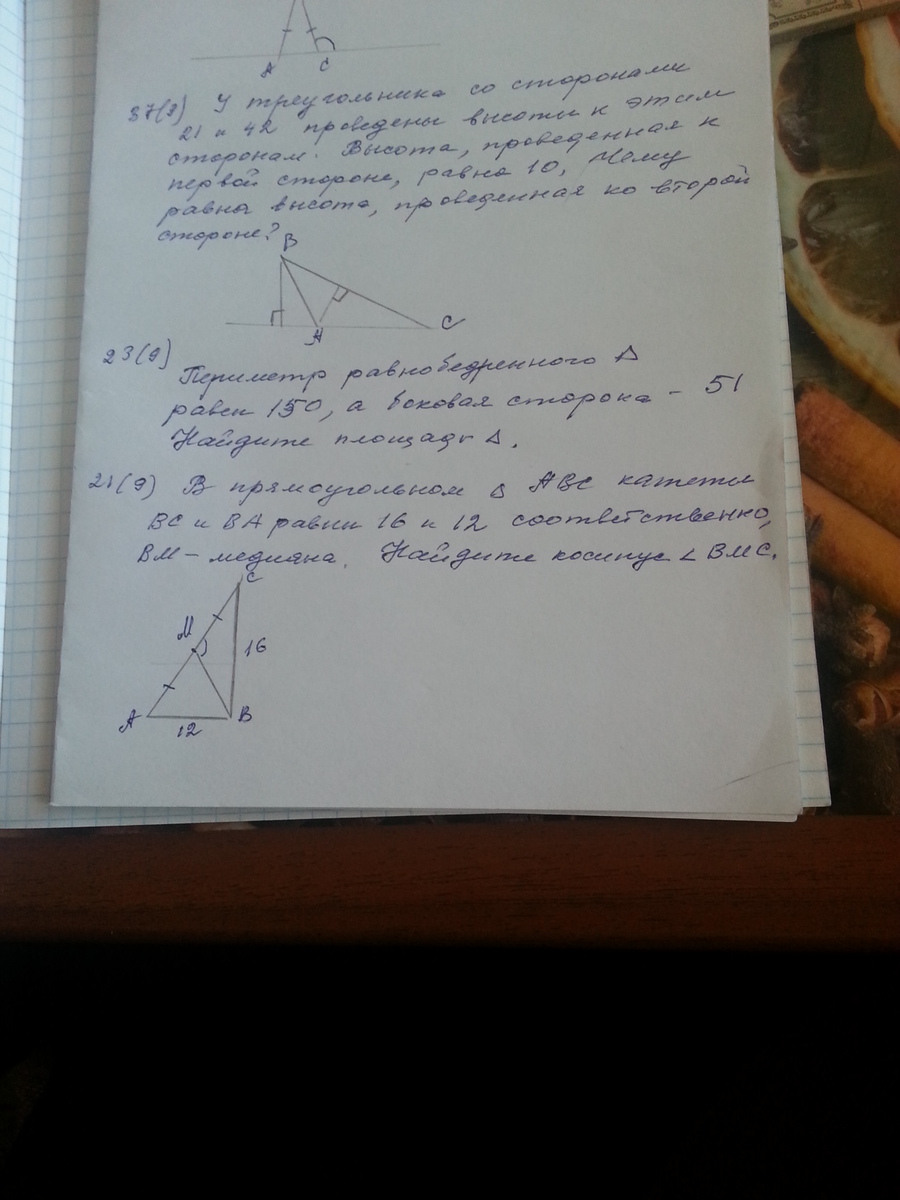 A C
37(9) У треугольника со сторонами
21 и 42 проведены высоты к этим
сторонам. Высота, проведенная к
первой стороне, равна 10, Чему
равна высота, проведенная ко второй
стороне?
B
A
C
23(9)
Периметр равнобедренного Δ
равен 150, а боковая сторона - 51
Найдите площадь Δ.
21(9) В прямоугольном Δ ABC катеты
BC и BA равны 16 и 12 соответственно,
BM - медиана. Найдите косинус ∠ BMC.
C
M
16
A B
12